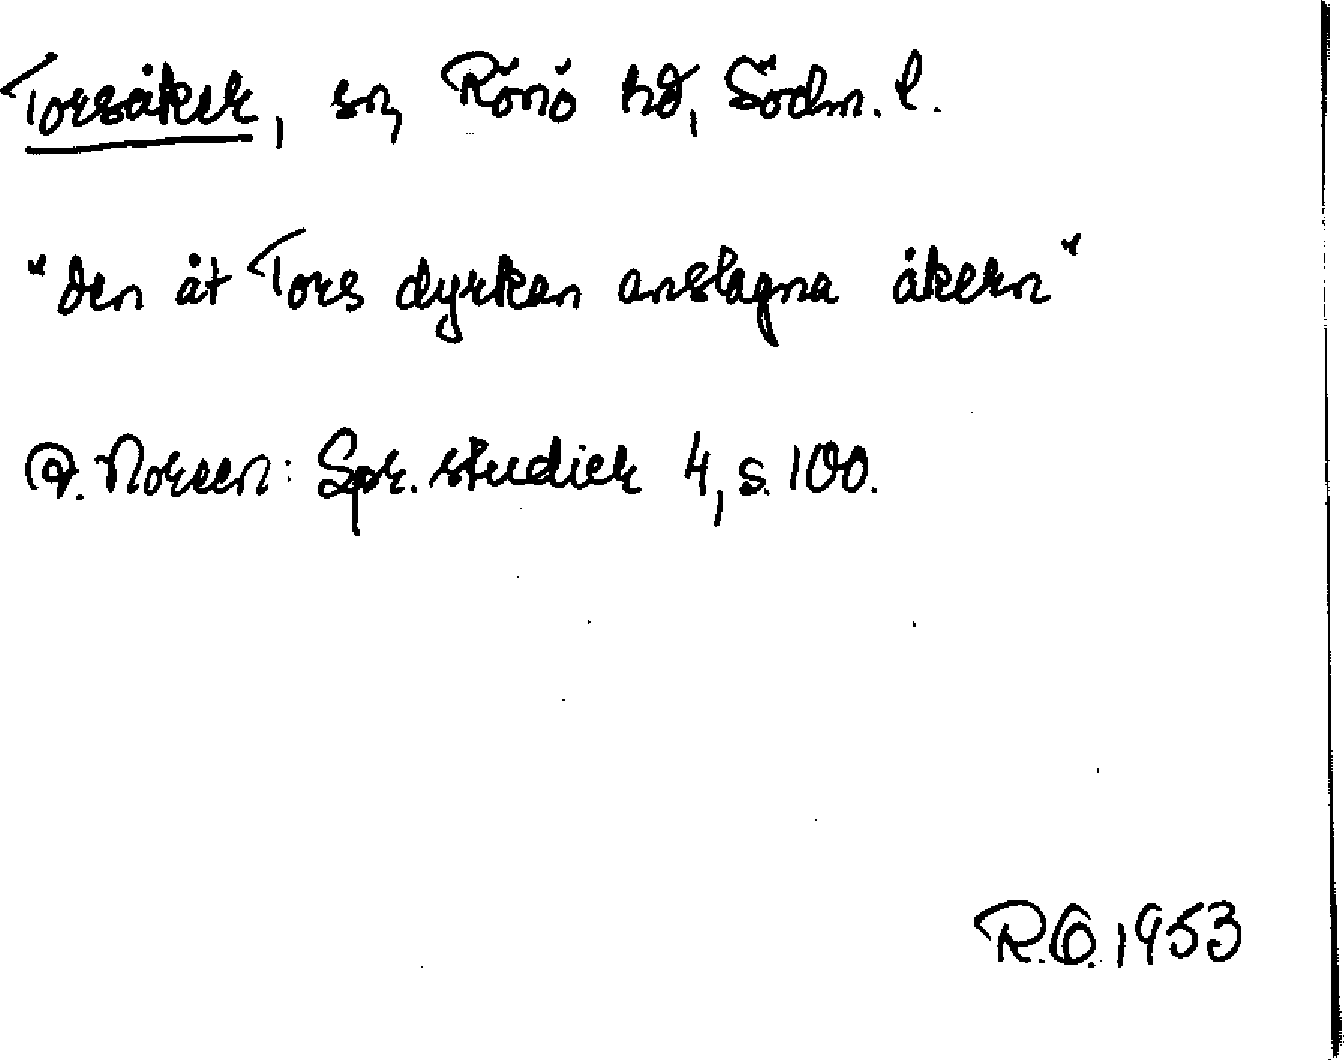 Torsåker, sn, Rönö hd, Södm. l.
"den åt Tors dyrkan anslagna åkern"
A. Noreen: Spr. studier 4, s. 100.
R.O. 1953